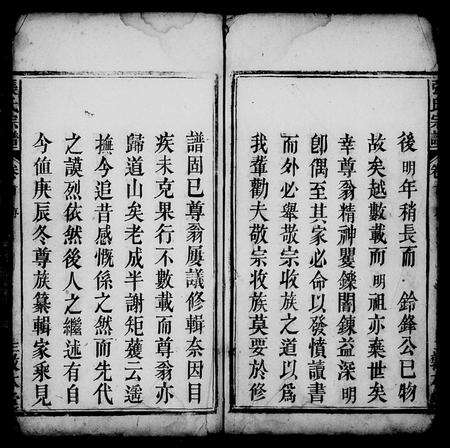 後明年稍長而 鈴鋒公已物
故矣越數載而明祖亦棄世矣
幸尊翁精神矍鑠閱鍊益深明
卽偶至其家必命以發憤讀書
而外必舉敬宗收族之道以爲
我輩勸夫敬宗收族莫要於修
譜固已尊翁屢議修輯奈因目
疾未克果行不數載而尊翁亦
歸道山矣老成半謝矩蒦云遥
撫今追昔感慨係之然而先代
之謨烈依然後人之繼述有自
今值庚辰冬尊族纂輯家乘見
張氏宗譜